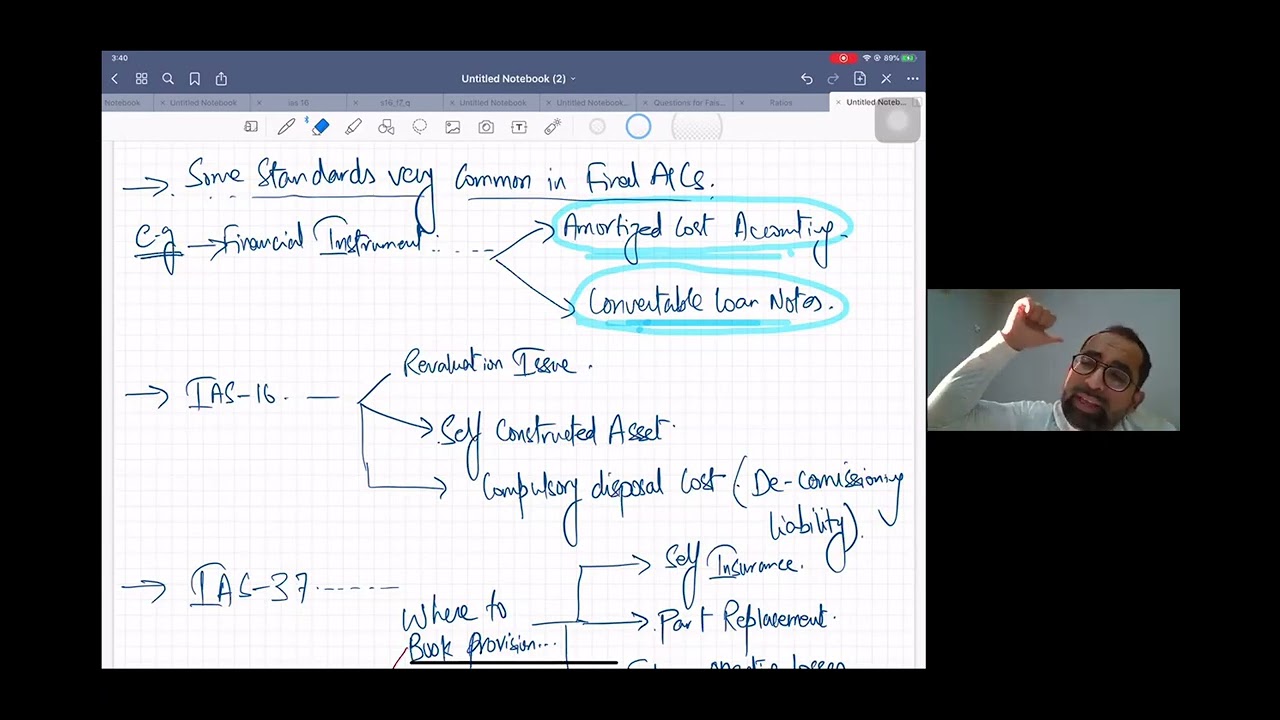 3:40
89%
Untitled Notebook (2)
Notebook
Untitled Notebook
ias 16
s16_17_q
Untitled Notebook
Untitled Notebook...
Questions for Fais...
Ratios
Untitled Noteb...
→ Some Standards very Common in Final A/Cs.
e-g → Financial Instrument
Amortized Cost Accounting.
Convertable Loan Notes.
→ IAS-16. —
Revaluation Issue.
Self Constructed Asset.
Compulsory disposal Cost (De-comissioning
liability).
→ IAS-37
Where to
Book Provision...
Self Insurance.
Part Replacement.
losses